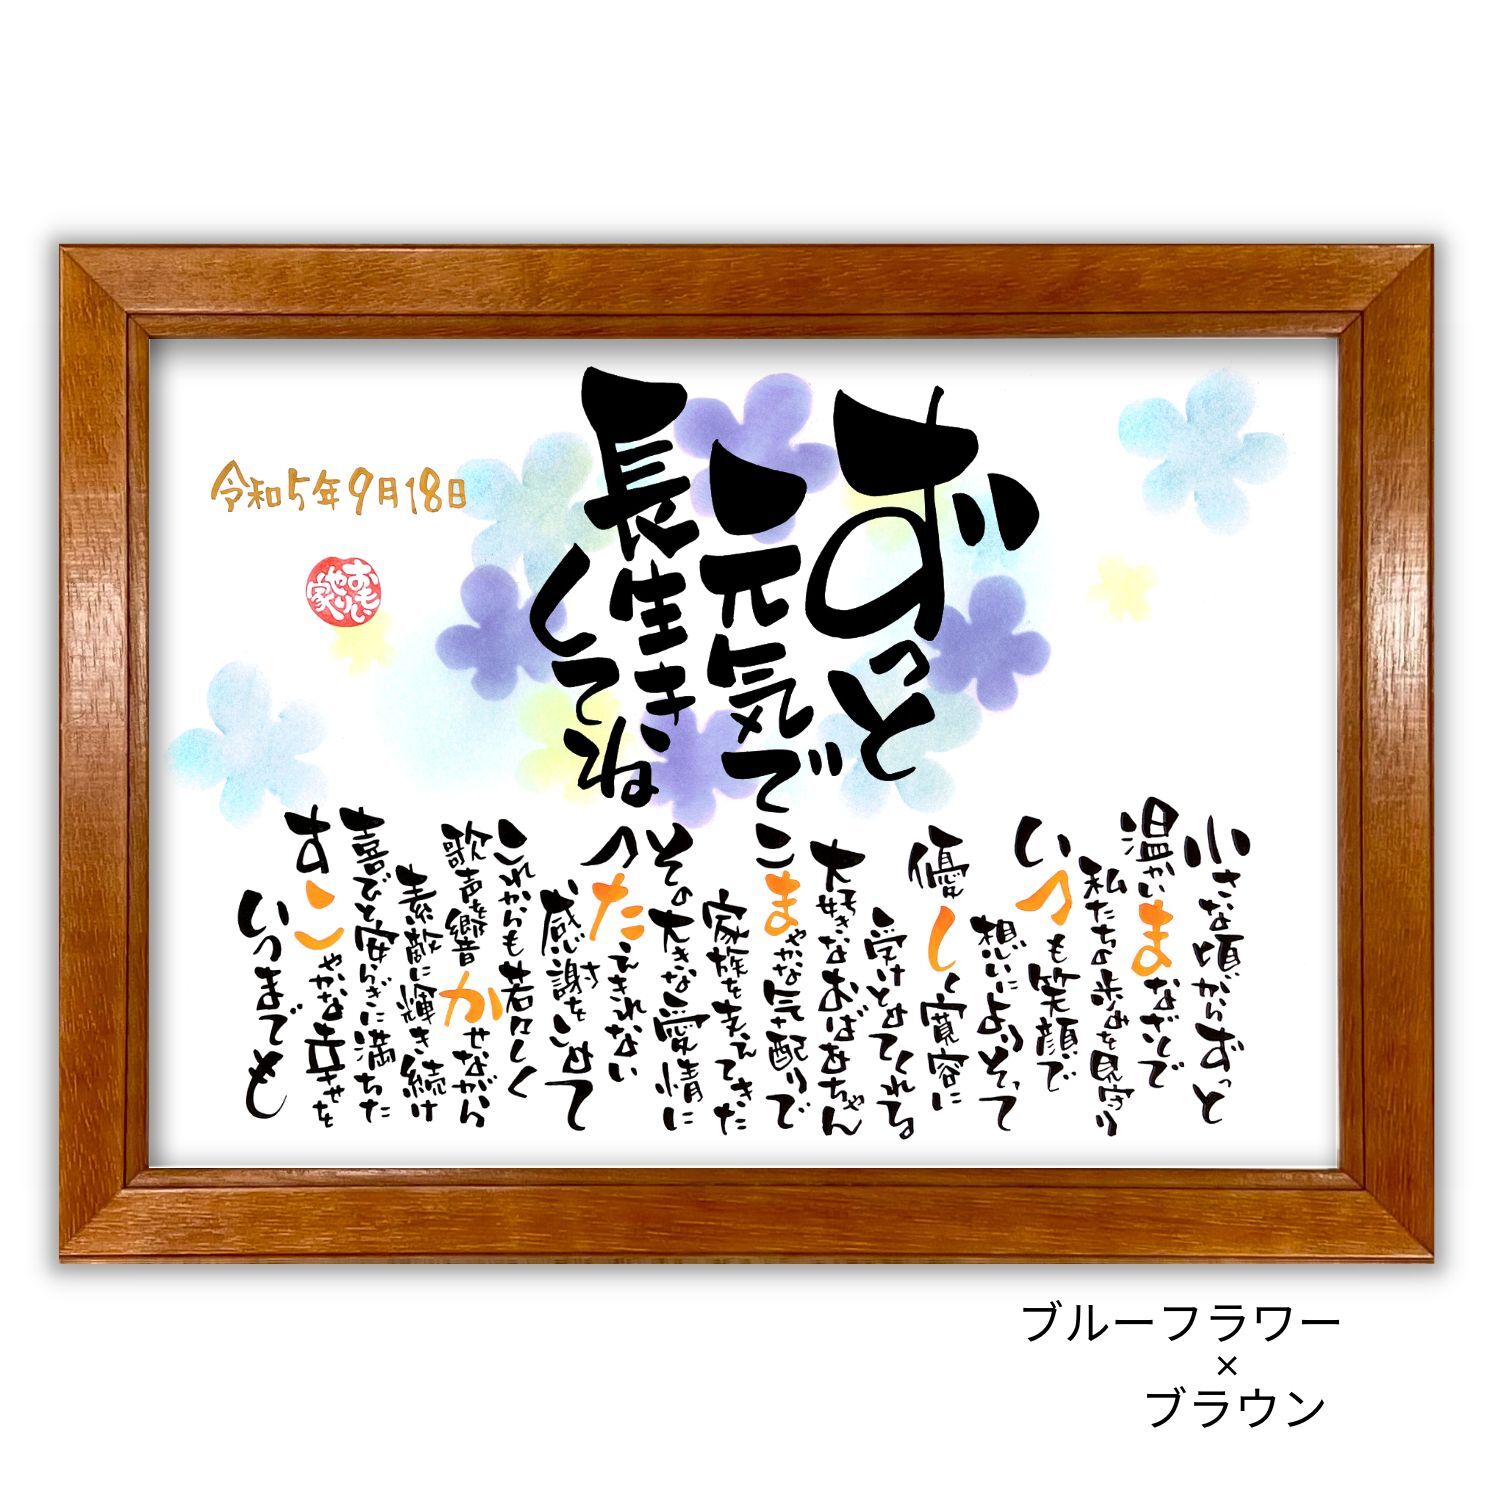 ずっと
元気で
長生き
してね
令和5年9月18日
おもい
やり
家
小さな頃からずっと
温かいまなざしで
私たちの歩みを見守り
いつも笑顔で
想いによりそって
優しく寛容に
受けとめてくれる
大好きなおばあちゃん
こまやかな気配りで
家族を支えてきた
その大きな愛情に
つたえきれない
感謝をこめて
これからも若々しく
歌声を響かせながら
素敵に輝き続け
喜びと安らぎに満ちた
すこやかな幸せを
いつまでも
ブルーフラワー
×
ブラウン